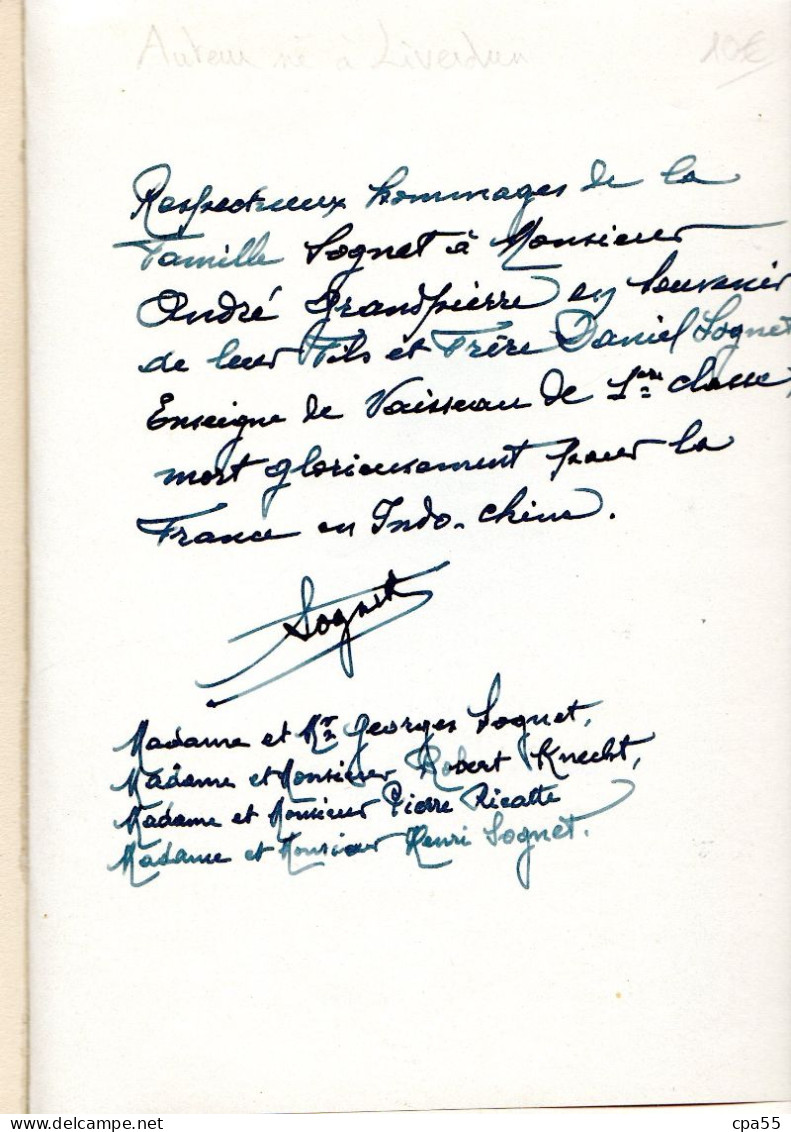 Auteur né à Liverdun 10€
Respectueux hommages de la
Famille Sognet à Monsieur
André Grandpierre en souvenir
de leur Fils et Frère Daniel Sognet
Enseigne de Vaisseau de 1ère classe,
mort glorieusement pour la
France en Indo-chine.
Sognet
Madame et Mr Georges Sognet,
Madame et Monsieur Robert Knecht,
Madame et Monsieur Pierre Ricatte
Madame et Monsieur Henri Sognet.
cpa55